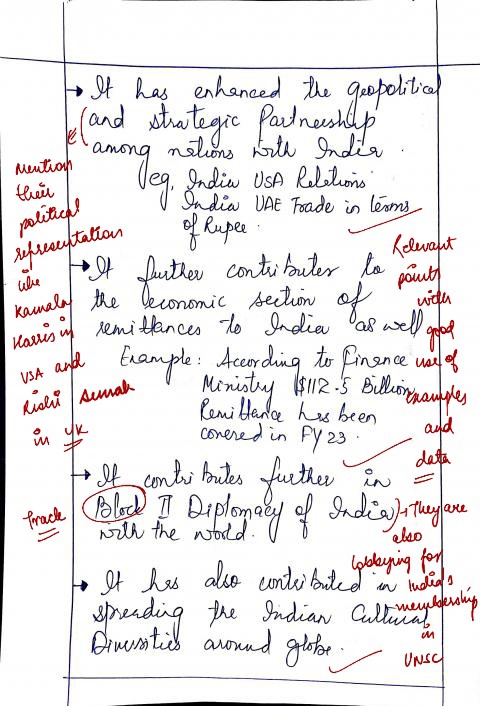 → It has enhanced the geopolitical
and strategic Partnership
among nations with India.
eg. India USA Relations
India UAE Trade in terms
of Rupee.
Mention
their
political
representation
like
Kamala
Harris in
USA and
Rishi Sunak
in UK
→ It further contributes to
the economic section of
remittances to India as well
Example: According to Finance
Ministry $112.5 Billion
Remittance has been
covered in FY23.
Relevant
points
with
good
use of
examples
and
data
→ It contributes further in
Block II Diplomacy of India
with the world.
Track
+ They are
also
lobbying for
India's
membership
in
UNSC
→ It has also contributed in
spreading the Indian Cultural
Diversities around globe.